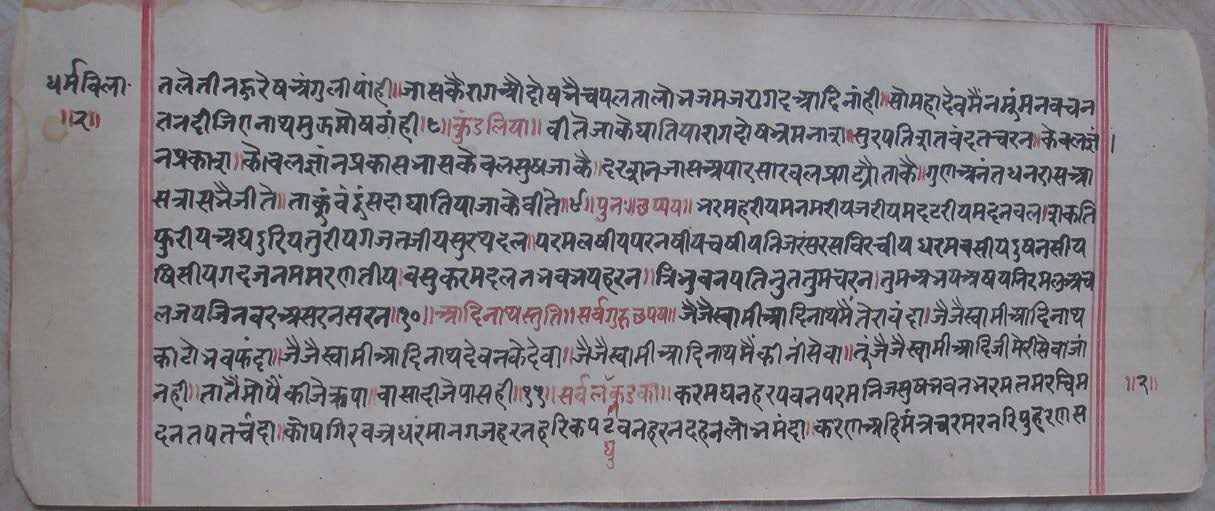 धर्मविला॰
॥२॥
तलेतीनकुरेषअंगुलीयांही॥जासकैरागऔदोषनैचपलतालोभजमजरागदआदिनांही॥सोमहादेवमैंनमूंमनवचन
तनदीजिएनाथमुऊमोषठांही॥८॥कुंडलिया॥वीतेजाकैघातियारागदोषभ्रमनाश॥सुरपतिशतवंदतचरन॥केवलज्ञां
नप्रकाश॥केवलज्ञांनप्रकासभासकेवलसुषजाकै॥दरशनजासअपारसारबलप्रगट्यौताकै॥गुणअनंतधनरासआ
सत्रासभैजीते॥ताकूंवंदूंसदाघातियाजाकेवीते॥९॥पुनः॥छप्पय॥भरमहरीयमनमरीयजरीयमदटरीयमदनबल॥शकति
फुरीयअघदुरियतुरीयगजतजीयसुरघदल॥परमलषीयपरनषीयचषीयनिजरंसरसविरचीयधरमवसीयदुषनसीय
षिसीयगदजनममरणतीय॥वसुकरमदलनभवभयहरन॥त्रिभुवनपतिनुततुमचरन॥तुमअभयअषयनिरमलअच
लजयजिनवरअसरनसरन॥१०॥आदिनाथस्तुति॥सर्वगुरुछपय॥जैजैस्वामीआदिनाथमैंतेरावंदा॥जैजैस्वामीआदिनाथ
काटोभवफंदा॥जैजैस्वामीआदिनाथदेवनकेदेवा॥जैजैस्वामीआदिनाथमैंकीनीसेवा॥तूंजैजैस्वामीआदिजीमेरीसेवाजां
नही॥तातैंमोपैंकीजेकृपा॥वासादीजेपासही॥११॥सर्वलघुकडका॥करमघनहरपवनपरमनिजसुषभवनभरमतमरविम
॥२॥
दनतपतचंदा॥कोपगिरवज्रधरंमानगजहरनहरिकपटवनहरनदहनलोभमंदा॥करणअहिमंत्रवरमरनरिपुहरणस